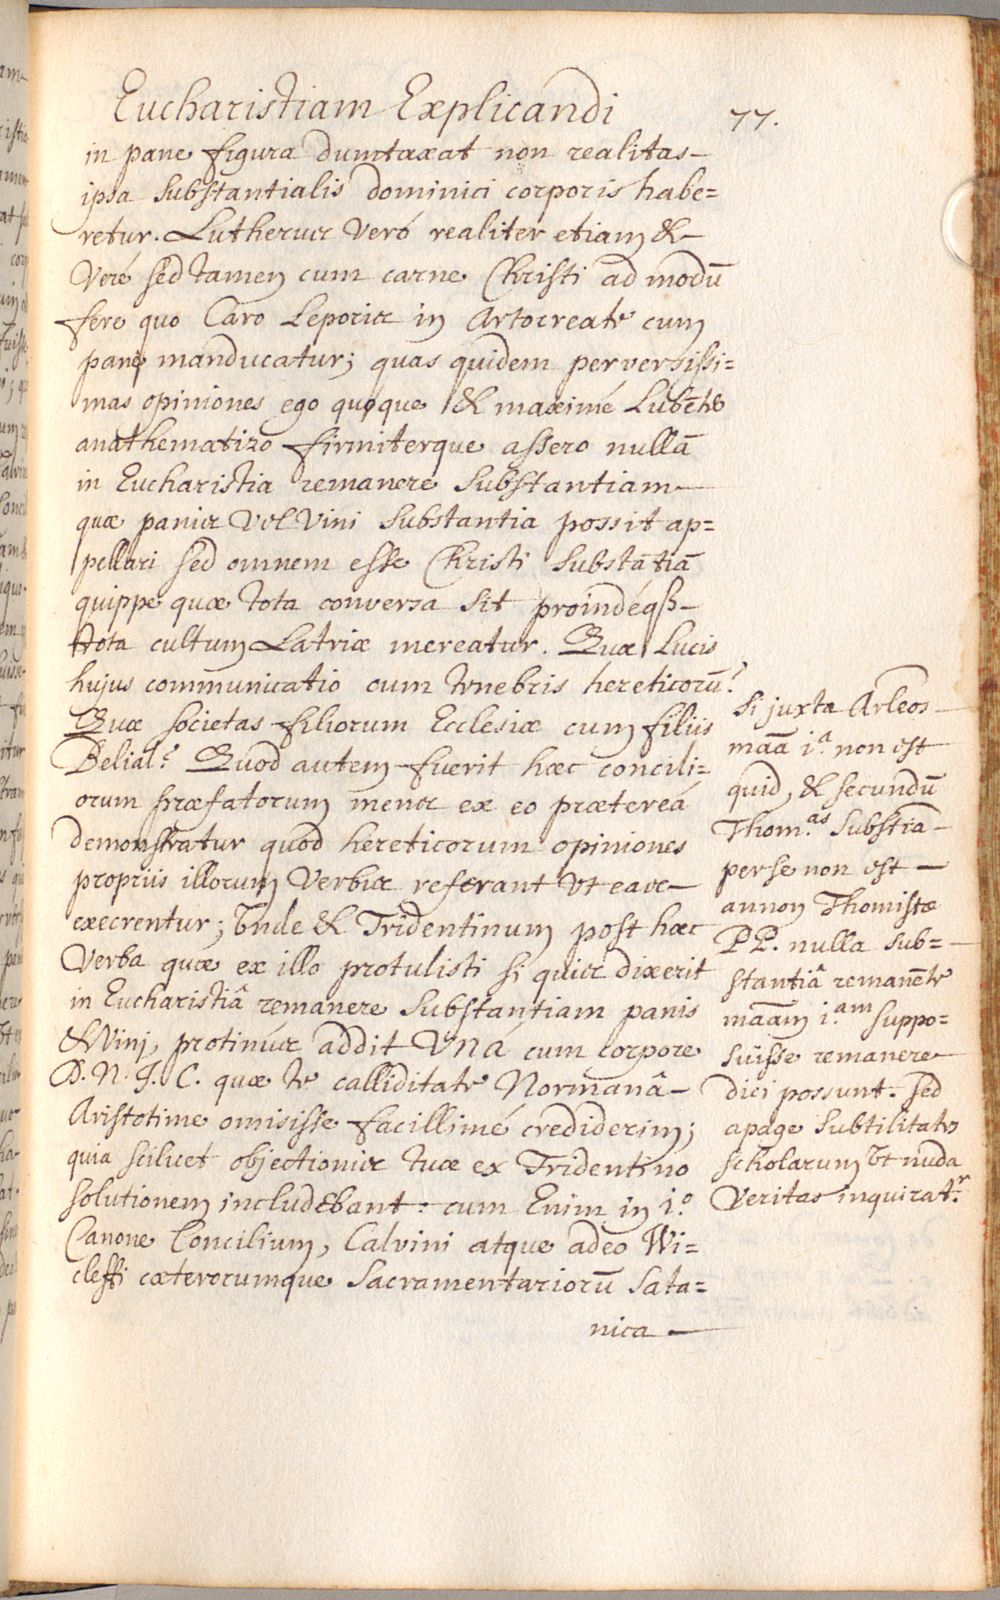 Eucharistiam Explicandi
77.
in pane figura dumtaxat non realitas
ipsa substantialis dominici corporis habe=
retur. Lutherus Veró realiter etiam &
Veré sed tamen cum carne Christi ad modū
fere quo Caro Leporis in Artocreate cum
pane manducatur; quas quidem perversissi=
mas opiniones ego quoque & maximé Lubēte
anathematizo firmiterque assero nullā
in Eucharistia remanere Substantiam
quæ panis Vel Vini Substantia possit ap=
pellari sed omnem esse Christi Substātiā
quippe quæ tota conversa sit proindéqß
tota cultum Latriæ mereatur. Quæ Lucis
hujus communicatio cum tenebris hereticorū?
Quæ societas filiorum Ecclesiæ cum filiis
Belial? Quod autem fuerit hæc concili=
orum præfatorum mens ex eo prætereá
demonstratur quod hereticorum opiniones
propriis illorum Verbis referant Vt eas
execrentur; Unde & Tridentinum post hæc
Verba quæ ex illo protulisti si quis dixerit
in Eucharistiâ remanere Substantiam panis
& Vini, protinús addit Vná cum corpore
D. N. J. C. quæ te calliditate Normanâ
Aristotime omisisse facillimé crediderim;
quia scilicet objectionis tuæ ex Tridentino
solutionem includebant: cum Enim in i.º
Canone Concilium, Calvini atque adeo Wi=
cleffi cæterorumque Sacramentariorū Sata=
nica
Si juxta Arleos
maā i.ª non est
quid, & secundū
Thom.as Substia
per se non est
annon Thomistæ
P P. nulla Sub=
stantiâ remanēte
maāam i.am suppo=
suisse remanere
dici possunt. sed
apage Subtilitates
scholarum Ut nuda
Veritas inquirat.r